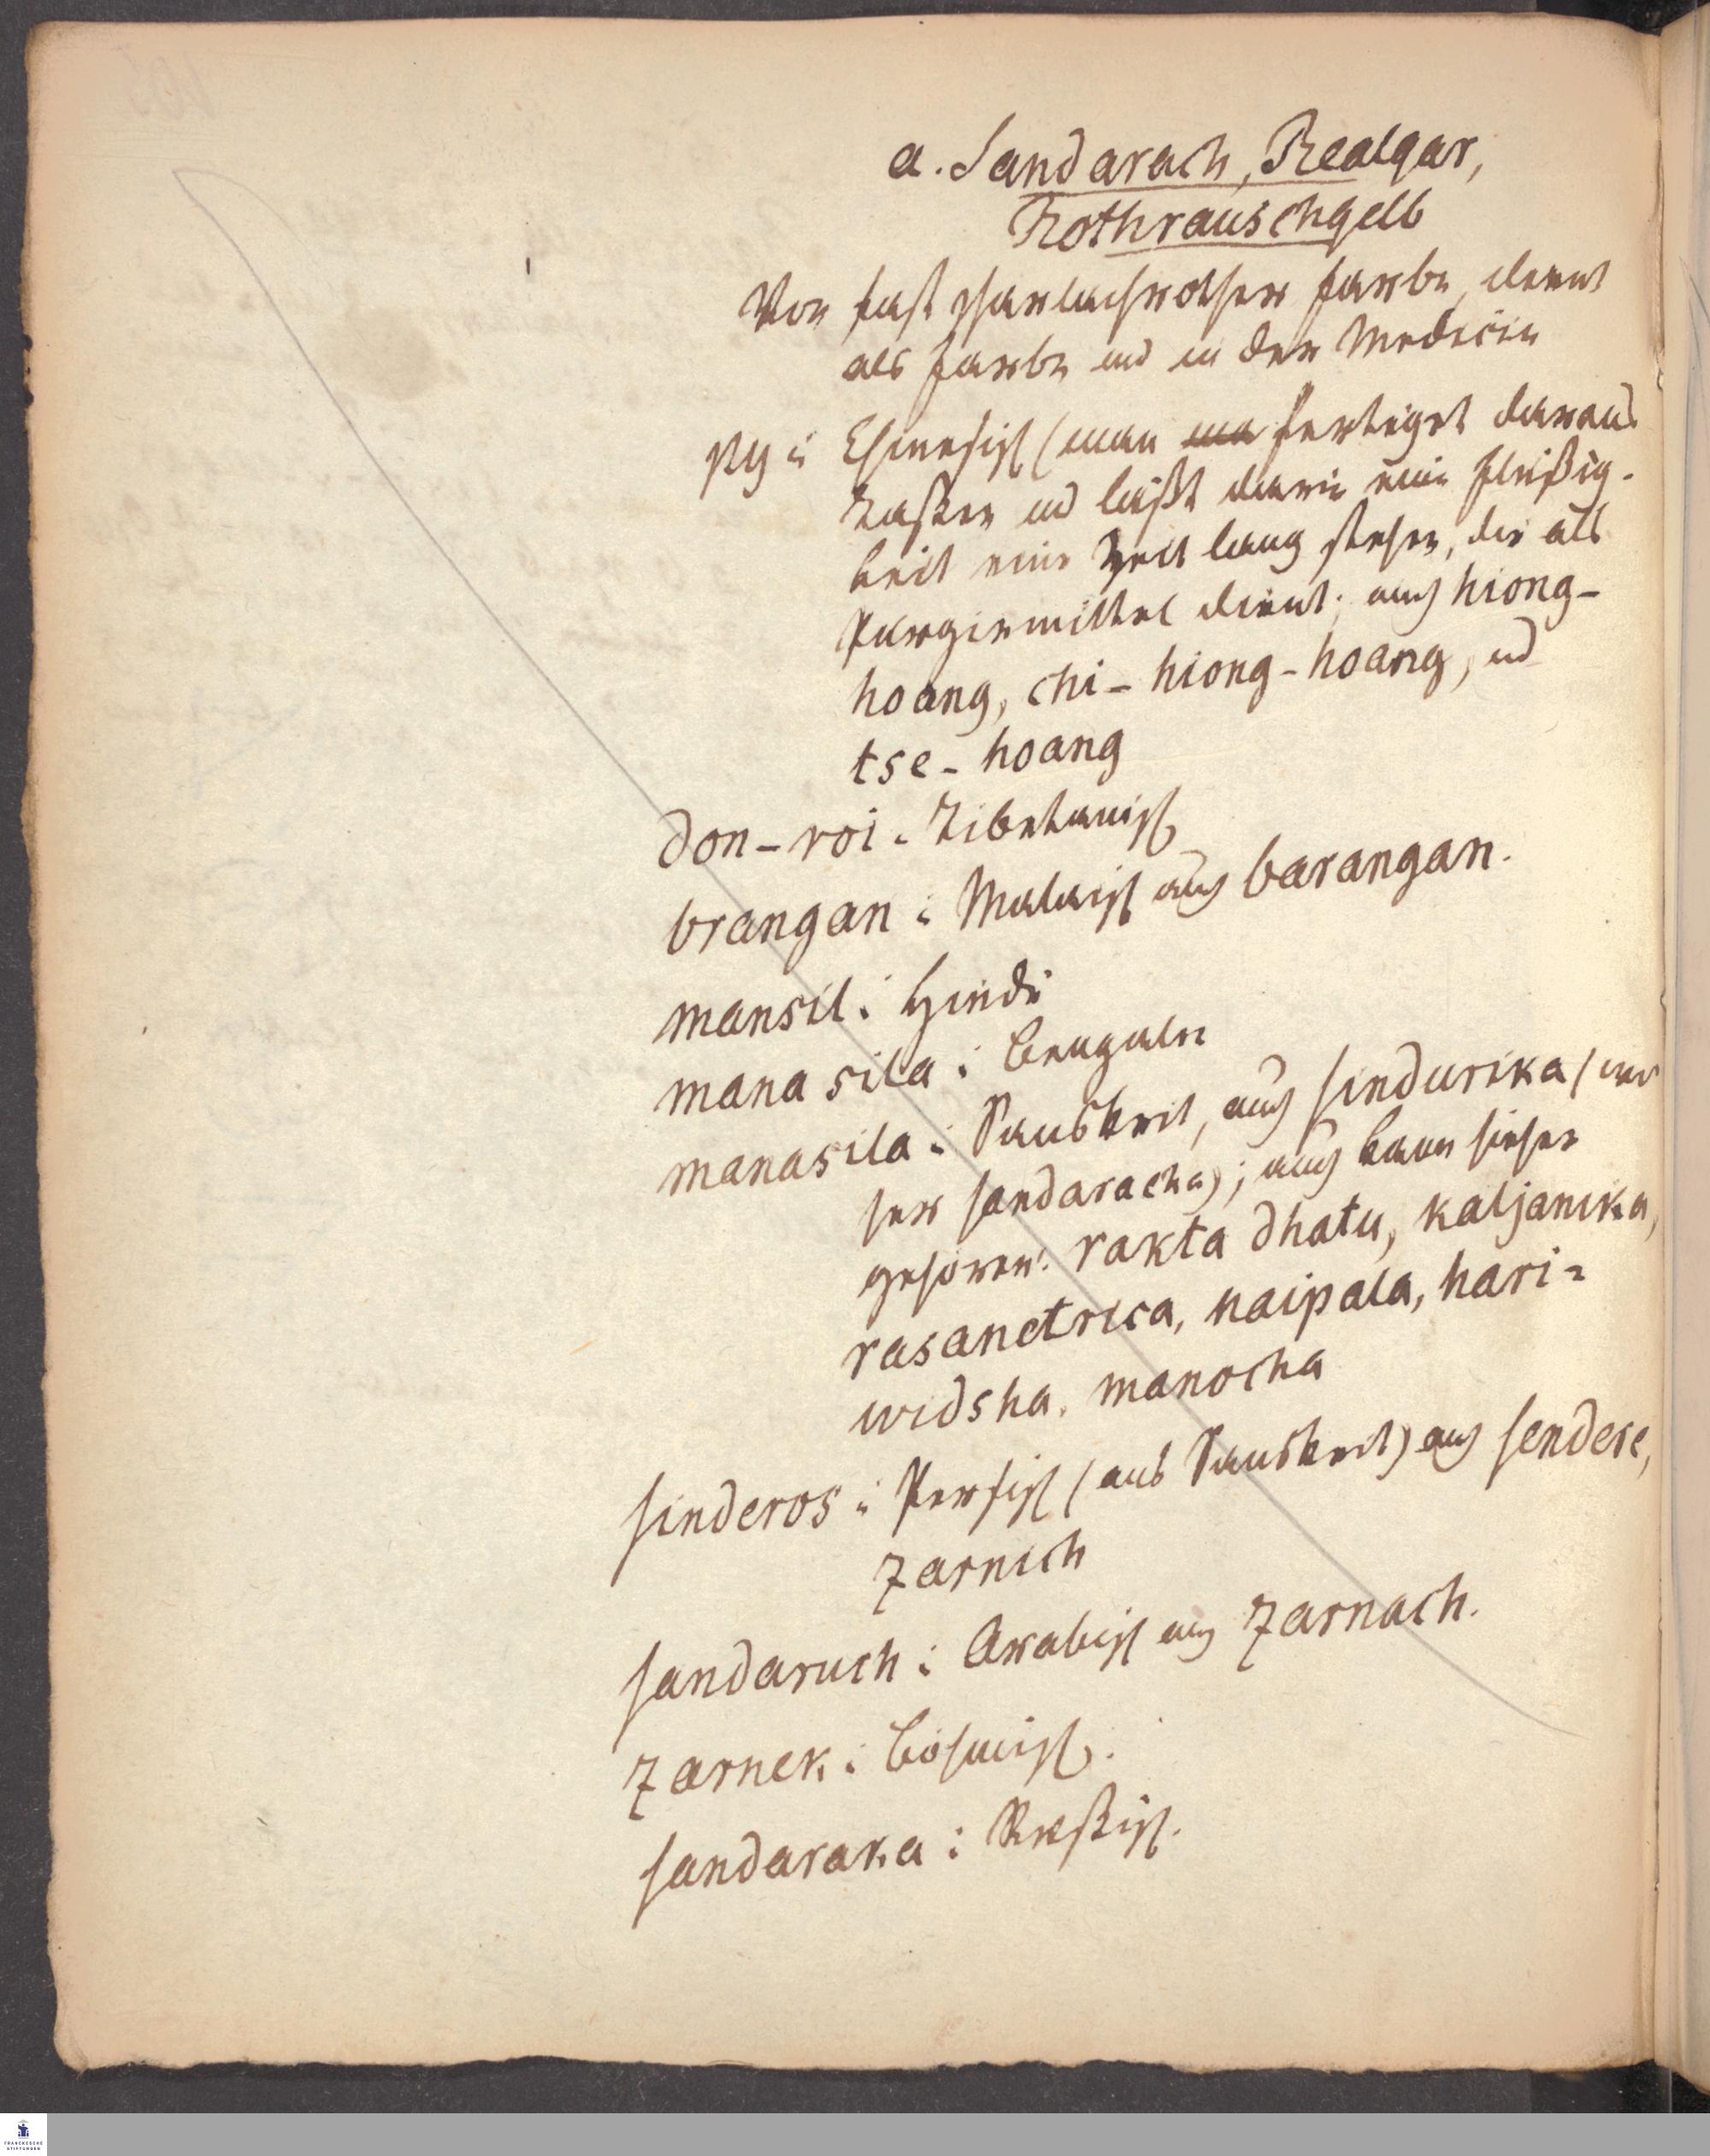 a. Sandarach, Realgar,
Rothrauschgelb
Von fast scharlachrother Farbe, dient
als Farbe und in der Medicin
py i: Chinesisch (man ma fertiget daraus
Tassen und läßt darin eine Flüßig-
keit eine Zeit lang stehen, die als
Purgiermittel dient; auch hiong-
hoang, chi-hiong-hoang, und
tse-hoang
don-roi: Tibetanisch
brangan: Malaisch auch barangan.
mansil: Hindi
mana sila: Bengalen
manasila: Sanskrit, auch sindurika (wo
her sandaracha); auch kann hieher
gehören: rakta dhatu, kaljanika,
rasanetrica, naipala, hari-
widsha, manocha
sinderos: Persisch (aus Sanskrit) auch sendere,
zarnich
sandaruch: Arabisch auch zarnach.
zarnek: Bösnisch.
sandaraka: Russisch.
FRANCKESCHE
STIFTUNGEN